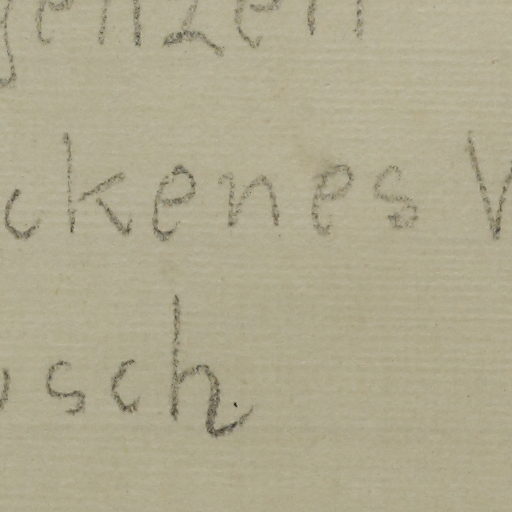 genzen
ckenes V
usch